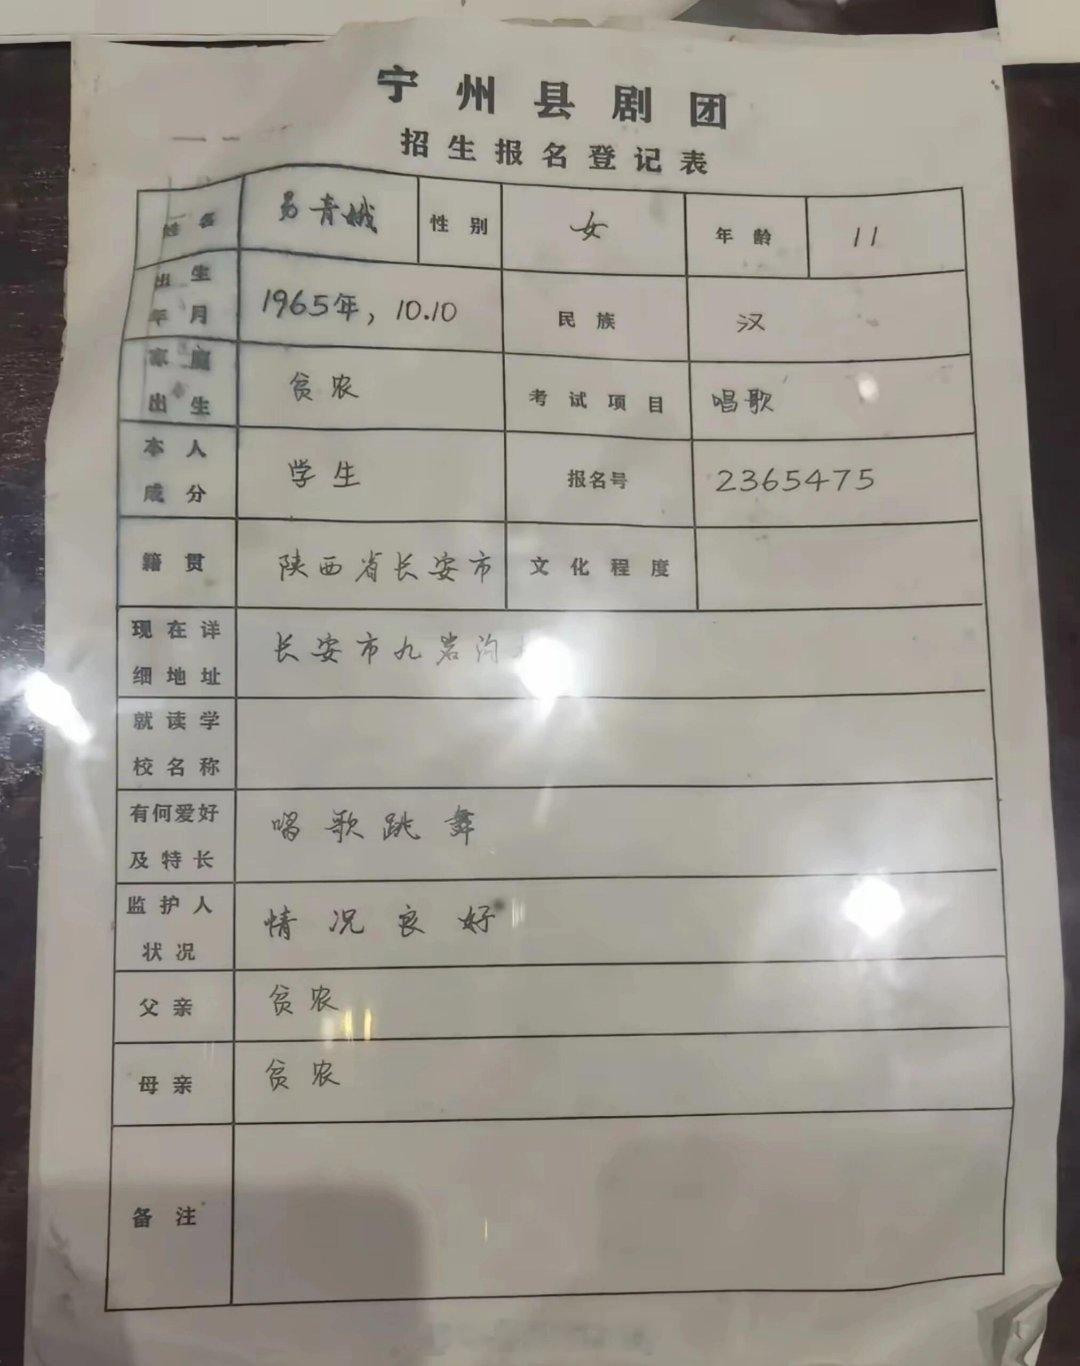 宁州县剧团
招生报名登记表
姓名 易青娥 性别 女 年龄 11
出生年月 1965年，10.10 民族 汉
家庭出生 贫农 考试项目 唱歌
本人成分 学生 报名号 2365475
籍贯 陕西省长安市 文化程度
现在详细地址 长安市九岩沟
就读学校名称
有何爱好及特长 唱歌跳舞
监护人状况 情况良好
父亲 贫农
母亲 贫农
备注